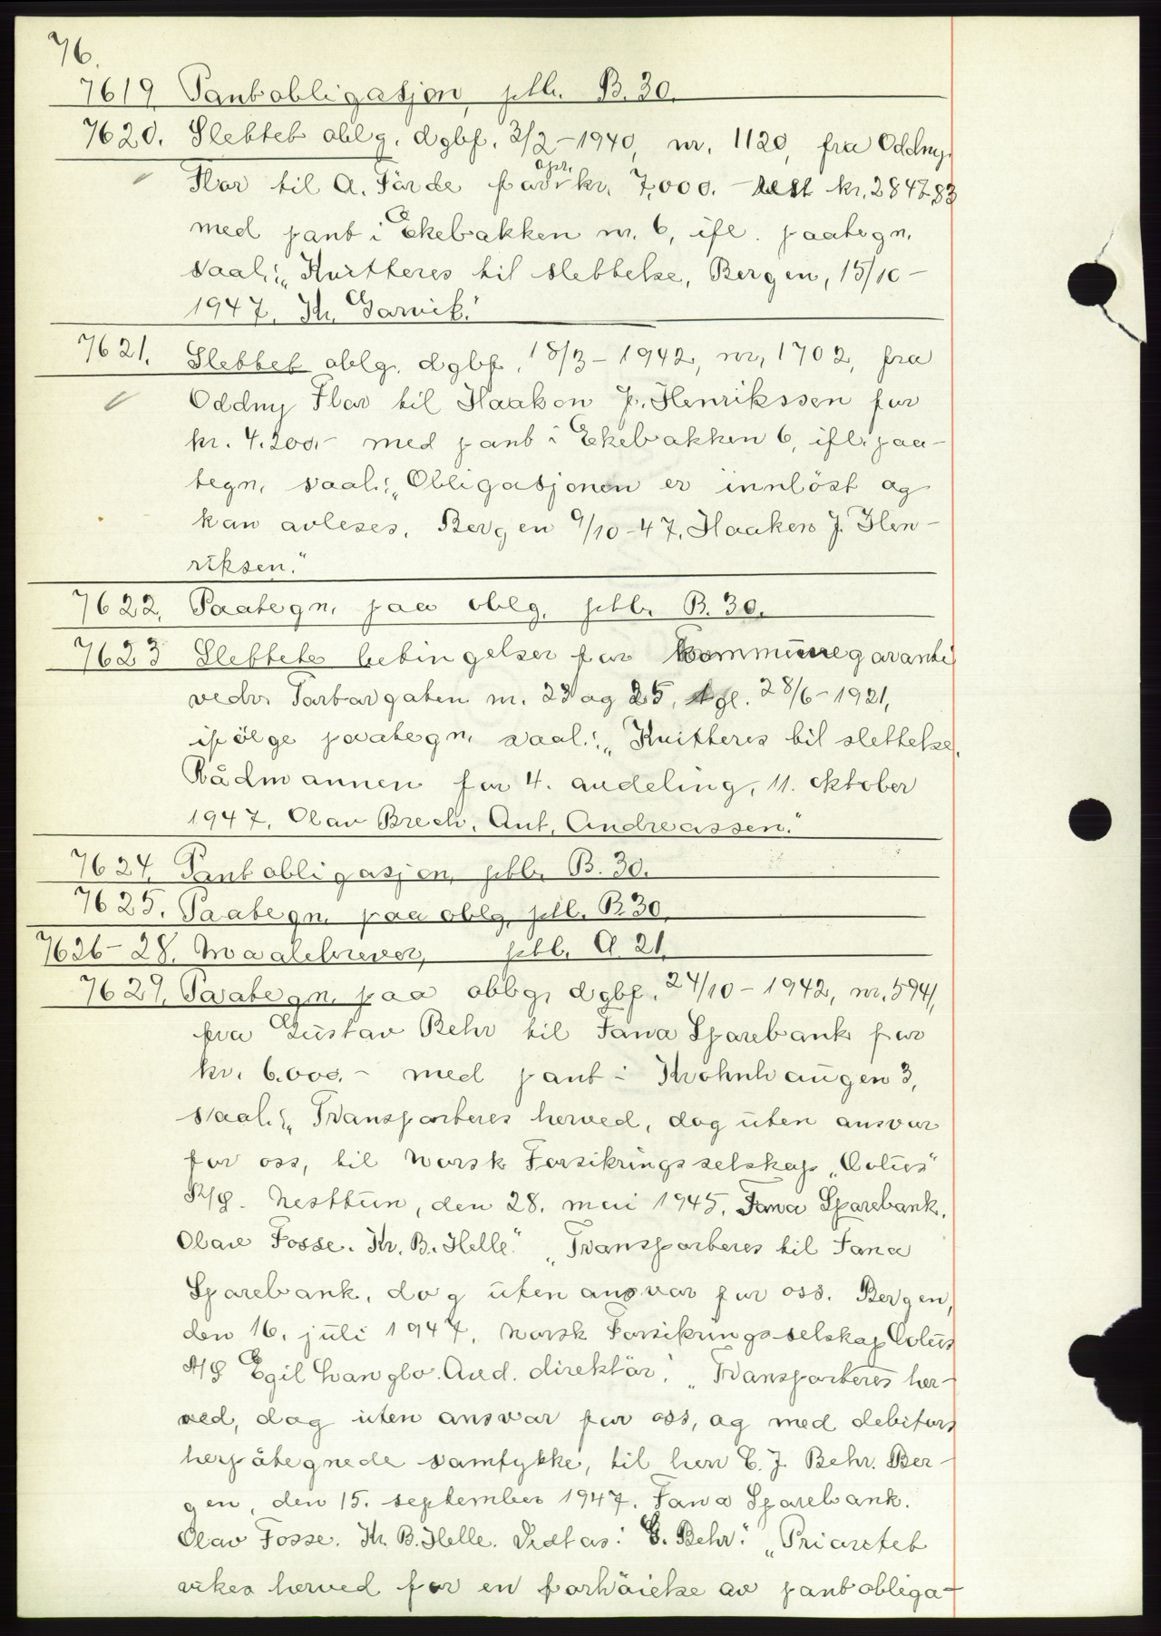 76.
7619 Pantobligasjon, ptb. B. 30.
7620. Slettet oblg. dgbf. 3/2-1940, nr. 1120, fra Oddny
Flor til A. Förde for opr. kr. 7.000.- rest kr. 2847,83
med pant i Ekebakken nr. 6, ifl. paategn.
saal.: "Kvitteres til slettelse, Bergen, 15/10-
1947. Kr. Garvik."
7621. Slettet oblg. dgbf. 18/3-1942, nr. 1702, fra
Oddny Flor til Haakon J. Henrikssen for
kr. 4.200.- med pant i Ekebakken 6, ifl. paa-
tegn. saal.: "Obligasjonen er innlöst og
kan avleses. Bergen 9/10-47. Haakon J. Hen-
riksen."
7622. Paategn. paa oblg. ptb. B. 30.
7623 Slettete betingelser for kommunegaranti
vedr. Torborgaten nr. 23 og 25, tgl. 28/6-1921,
ifölge paategn. saal.: "Kvitteres til slettelse.
Rådmannen for 4. avdeling, 11. oktober
1947. Olav Brech. Ant. Andreassen."
7624. Pantobligasjon, ptb. B. 30.
7625. Paategn. paa oblg. ptb. B 30.
7626-28. Maalebrever, ptb. A. 21.
7629. Paategn. paa oblg. dgbf. 24/10-1942, nr. 5941,
fra Gustav Behr til Fana Sparebank for
kr. 6.000.- med pant i Krohnhaugen 3,
saal.: "Transporteres herved, dog uten ansvar
for oss, til Norsk Forsikringsselskap "Polus"
A/S. Nesttun, den 28. mai 1945. Fana Sparebank.
Olav Fosse. Kr. B. Helle." "Transporteres til Fana
Sparebank, dog uten ansvar for oss. Bergen,
den 16. juli 1947. Norsk Forsikringsselskap Polus
A/S Egil Langbo. Avd. direktör." "Transporteres her-
ved, dog uten ansvar for oss, og med debitors
herpåtegnede samtykke, til herr C. J. Behr. Ber-
gen, den 15. september 1947. Fana Sparebank.
Olav Fosse. Kr. B. Helle. Vedtas: G. Behr." "Prioritet
vikes herved for en forhöielse av pantobliga-